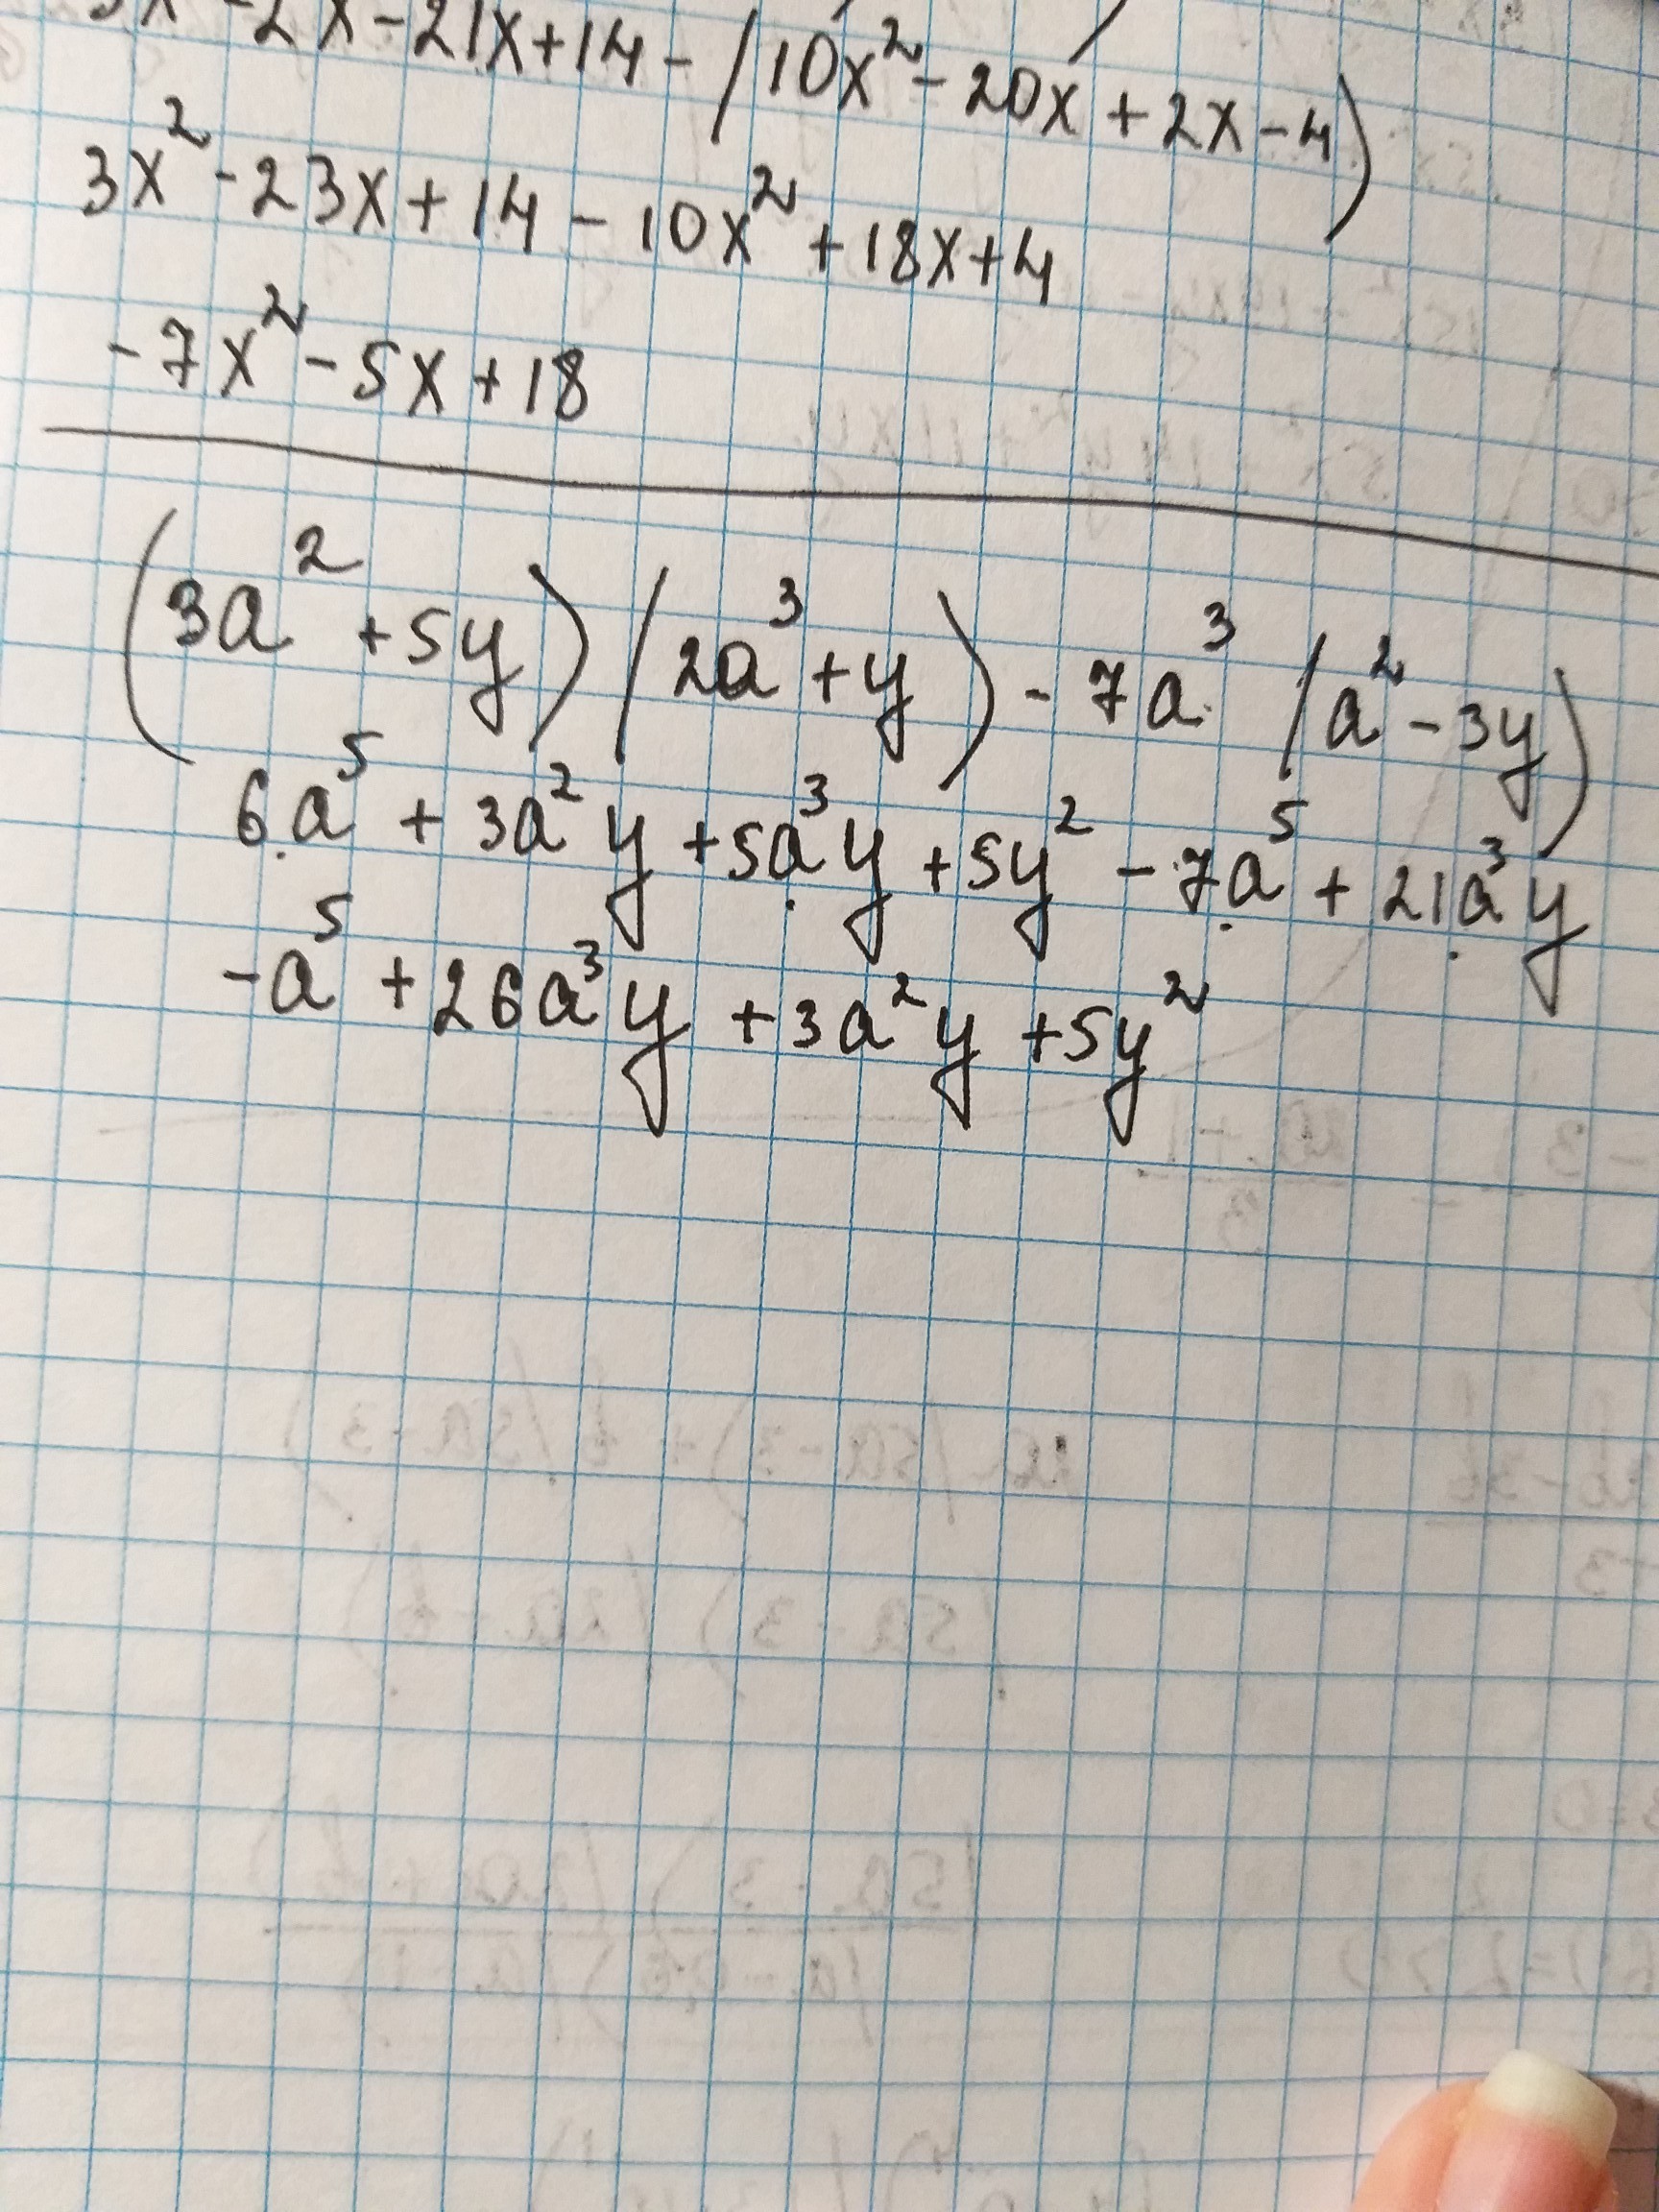 3x² - 2x - 21x + 14 - (10x² - 20x + 2x - 4)
3x² - 23x + 14 - 10x² + 18x + 4
- 7x² - 5x + 18
(3a² + 5y)(2a³ + y) - 7a³ (a² - 3y)
6a⁵ + 3a²y + 5a³y + 5y² - 7a⁵ + 21a³y
- a⁵ + 26a³y + 3a²y + 5y²